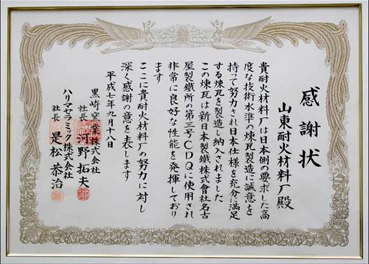 感謝状
山東耐火材料厂殿
貴耐火材料厂は日本側の要求した高
度な技術水準の煉瓦製造に誠意を
持って努力され日本仕様を充分に満足
する煉瓦を製造し納入されました
この煉瓦は新日本製鐵株式會社名古
屋製鐵所の第三号CDQに使用され
非常に良好な性能を発揮しており
ます
ここに貴耐火材料厂の努力に対し
深く感謝の意を表します
平成七年九月十八日
黒崎窯業株式会社
社長 河野拓夫
ハリマセラミック株式会社
社長 是松恭治